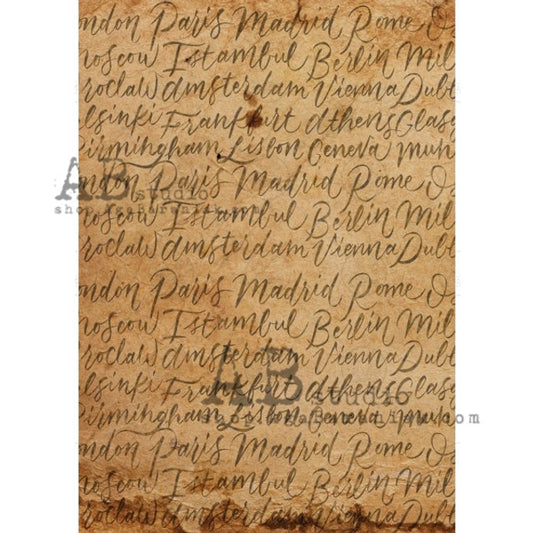 ondon Paris Madrid Rome O
Moscow Istambul Berlin Mil
roclaw Amsterdam Vienna Dubl
elsinki Frankfurt Athens Glasg
Birmingham Lisbon Geneva Mun
ondon Paris Madrid Rome Os
AB studio
Moscow Istambul Berlin Mil
roclaw Amsterdam Vienna Dubl
ondon Paris Madrid Rome Os
Moscow Istambul Berlin Mil
roclaw Amsterdam Vienna Dubl
elsinki Frankfurt Athens Glasg
AB studio
Birmingham Lisbon Geneva Mun
ondon Paris Madrid Rome Os
Moscow Istambul Berlin Mil
roclaw Amsterdam Vienna Dubl